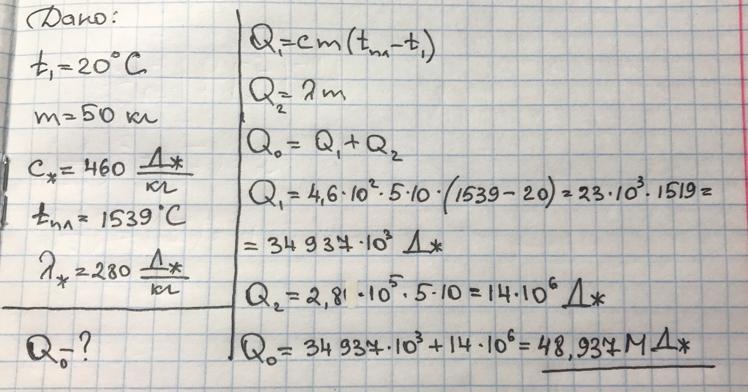 Дано:
t₁=20°C
m=50 кг
c*=460 Дж/кг
tпл=1539°C
λ*=280 Дж/кг
Q₀-?
Q₁=cm(tпл-t₁)
Q₂=λm
Q₀=Q₁+Q₂
Q₁=4,6·10²·5·10·(1539-20)=23·10³·1519=
=34937·10³ Дж
Q₂=2,8·10⁵·5·10=14·10⁶ Дж
Q₀=34937·10³+14·10⁶=48,937МДж